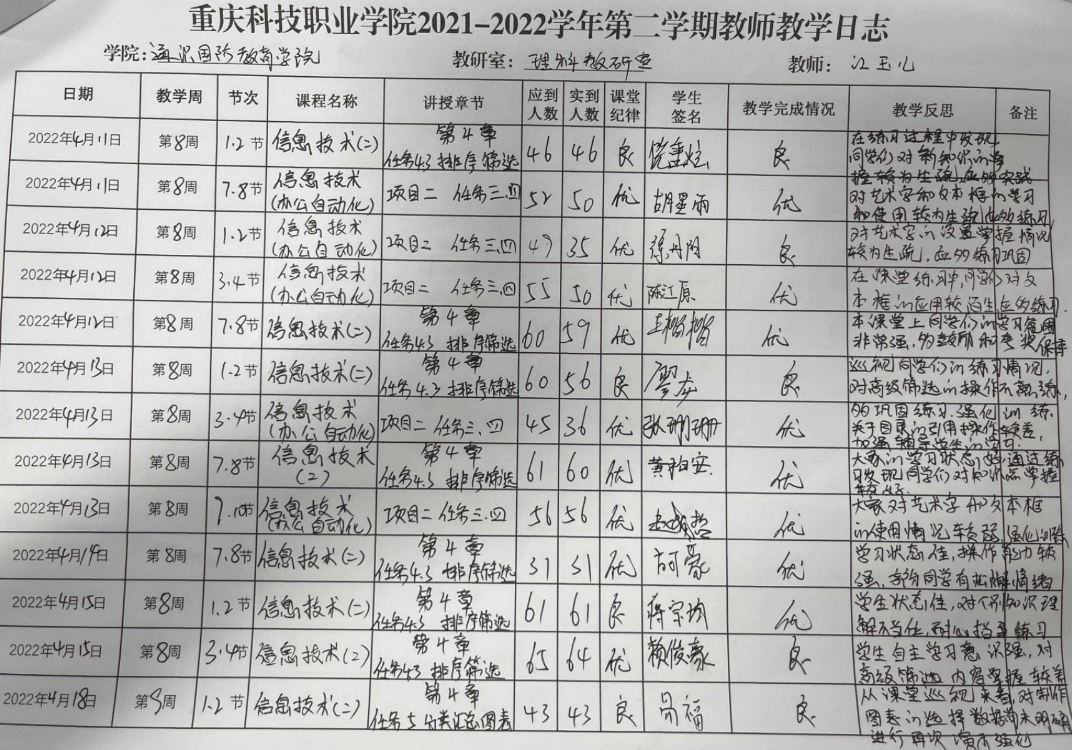 重庆科技职业学院2021-2022学年第二学期教师教学日志
学院:通识国际教育学院 教研室: 理科教研室 教师: 江玉儿
日期 教学周 节次 课程名称 讲授章节 应到人数 实到人数 课堂纪律 学生签名 教学完成情况 教学反思 备注
2022年4月11日 第8周 1.2节 信息技术(二) 第4章 任务4.3 排序筛选 46 46 良 良 在练习过程中发现同学们对新知识的掌握较为生疏,应多实践
2022年4月11日 第8周 7.8节 信息技术(办公自动化) 项目二 任务三.四 52 50 优 胡星雨 优 对艺术字和文本框的学习和使用较为生强,应多练习
2022年4月12日 第8周 1.2节 信息技术(办公自动化) 项目二 任务三.四 49 35 优 良 对艺术字的设置掌握情况较为生疏,应多练习巩固
2022年4月12日 第8周 3.4节 信息技术(办公自动化) 项目二 任务三.四 55 50 优 陈江原 优 在课堂练习中,同学们对文本框的应用较陌生应多练习
2022年4月12日 第8周 7.8节 信息技术(二) 第4章 任务4.3 排序筛选 60 59 优 优 本课堂上同学们的学习意愿非常强,多鼓励和
2022年4月13日 第8周 1.2节 信息技术(二) 第4章 任务4.3 排序筛选 60 56 良 廖龙 良 巡视同学们的练习情况,对高级筛选的操作不熟练,
2022年4月13日 第8周 3.4节 信息技术(办公自动化) 项目二 任务三.四 45 36 优 张珊珊 优 多巩固练习.强化训练.关于目录的引用操作较差,加强辅导学生的学习.
2022年4月13日 第8周 7.8节 信息技术(2) 第4章 任务4.3 排序筛选 61 60 优 优 大家的学习状态好,通过练习发现同学们对知识点掌握较好.
2022年4月13日 第8周 信息技术(办公自动化) 项目二 任务三.四 56 56 优 优 大家对艺术字和文本框的使用情况较弱,强化训练
2022年4月14日 第8周 7.8节 信息技术(二) 第4章 任务4.3 排序筛选 31 31 优 优 学习状态佳,操作能力较强,部份同学有松懈情绪
2022年4月15日 第8周 1.2节 信息技术(二) 第4章 任务4.3 排序筛选 61 61 良 蒋宗均 优 学生状态佳,对个别知识理解不当位,耐心指导练习
2022年4月15日 第8周 3.4节 信息技术(2) 第4章 任务4.3 排序筛选 65 64 优 赖俊豪 良 学生自主学习意识强,对高级筛选内容掌握较差
2022年4月18日 第9周 1.2节 信息技术(二) 第4章 任务5 分类汇总图表 43 43 良 良 从课堂巡视来看,对制作图表的选择数据并未明确进行再次演示强化